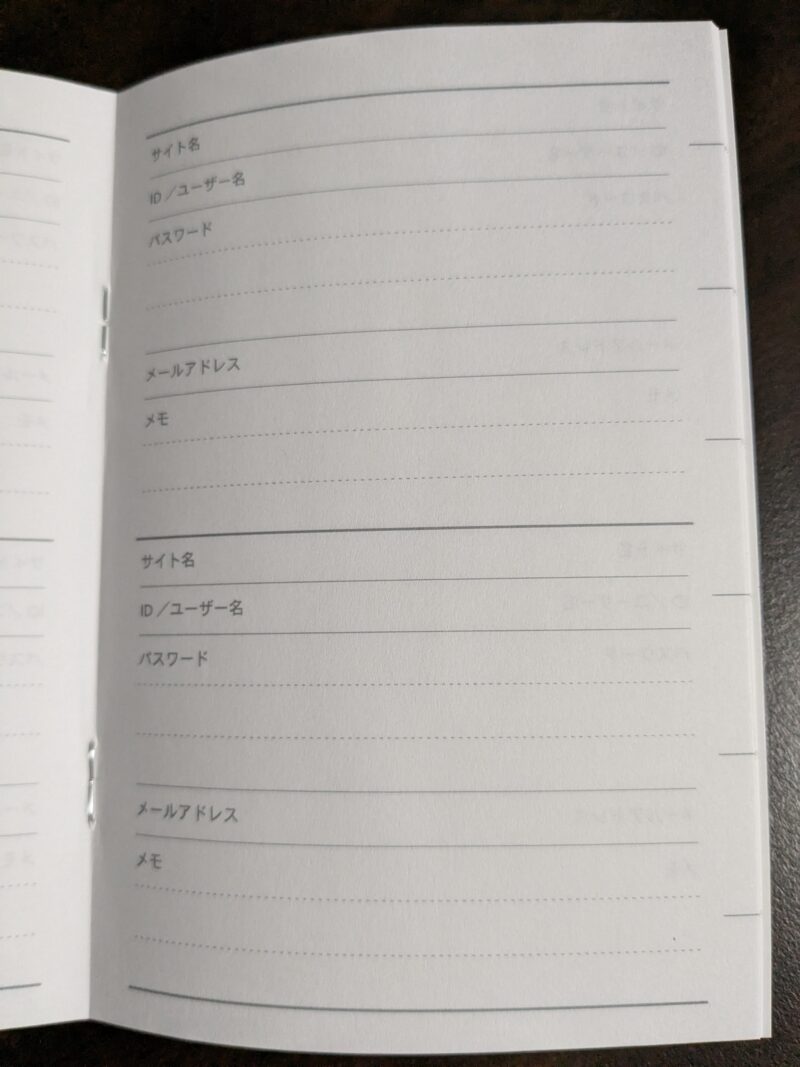 サイト名
ID／ユーザー名
パスワード
メールアドレス
メモ
サイト名
ID／ユーザー名
パスワード
メールアドレス
メモ